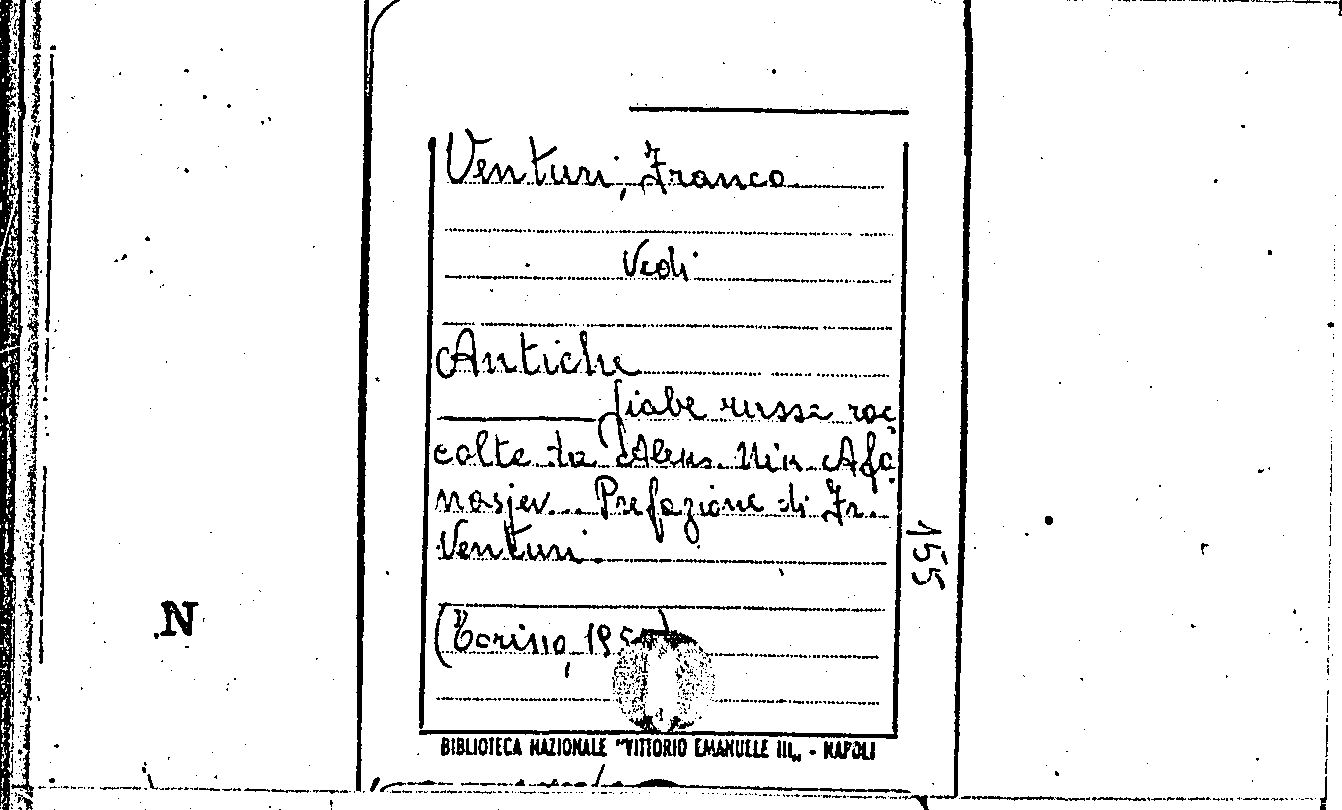 Venturi, Franco
Vedi
Antiche
fiabe russe rac
colte da Aleks. Nik. Afa
nasjev... Prefazione di Fr.
Venturi.
(Torino, 195
155
N
BIBLIOTECA NAZIONALE "VITTORIO EMANUELE III„ - NAPOLI